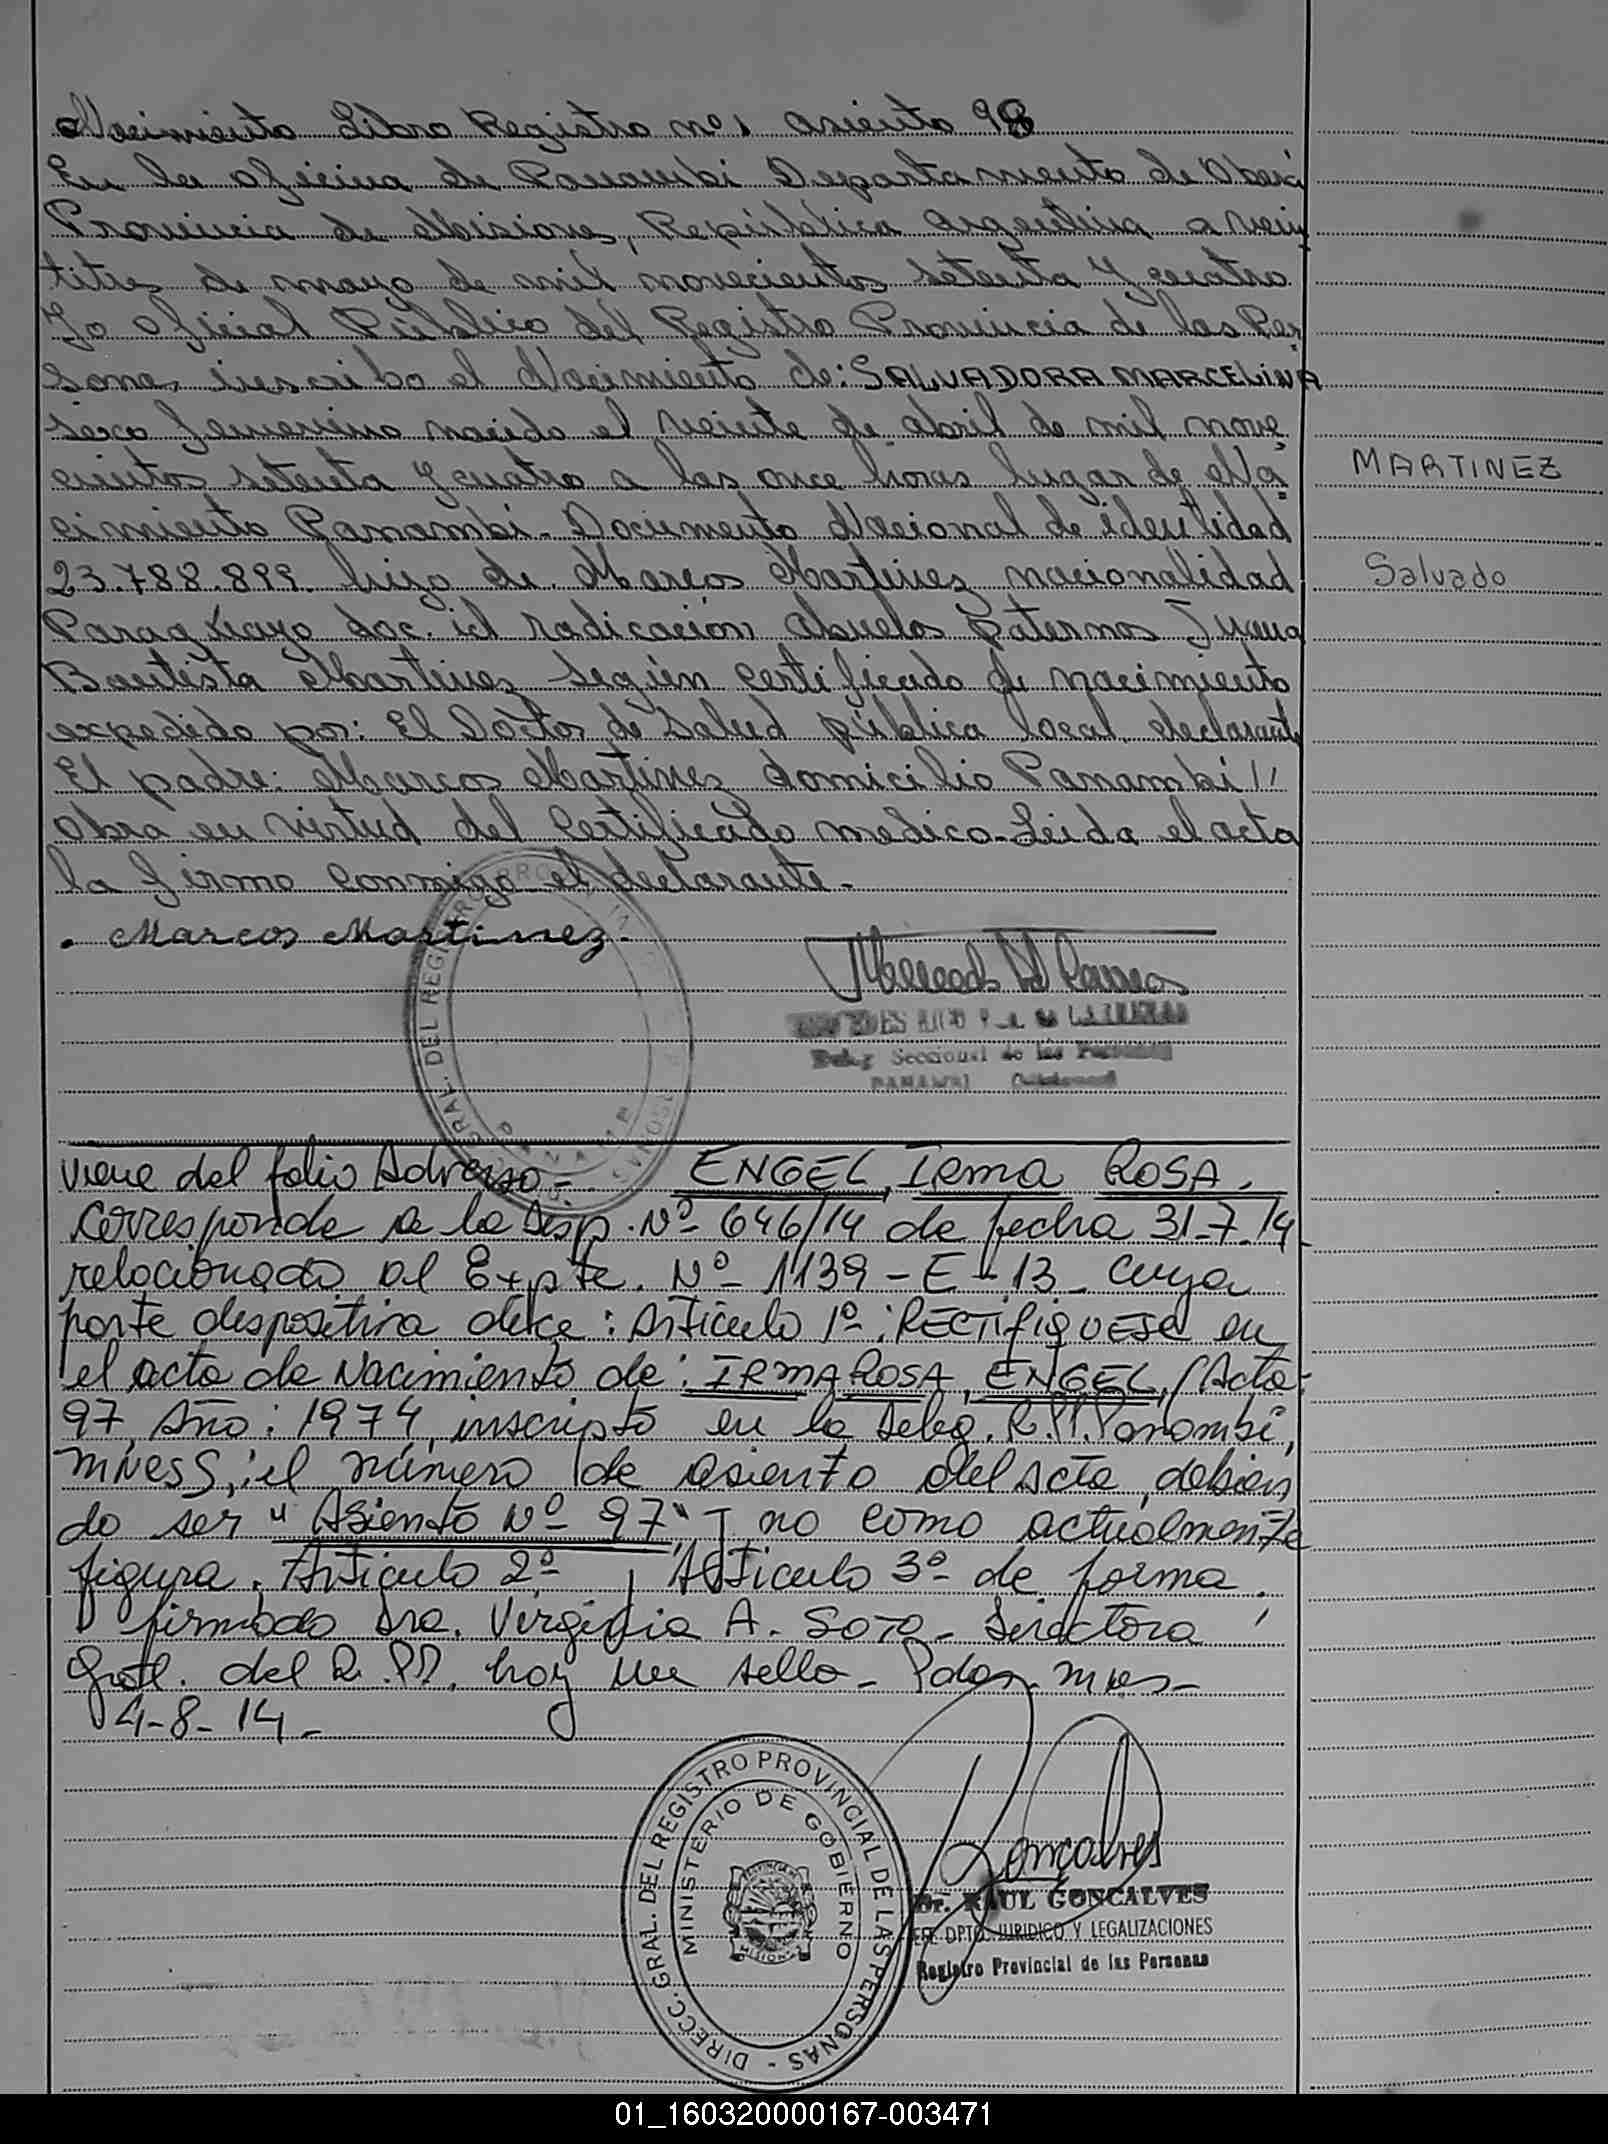 Nacimiento Libro Registro nº 1 asiento 98
En la oficina de Panambi Departamento de Oberá
Provincia de Misiones, República Argentina a vein
titres de mayo de mil novecientos setenta y cuatro
Yo Oficial Público del Registro Provincia de las Per
sonas inscribo el Nacimiento de: SALVADORA MARCELINA
sexo femenino nacido el veinte de abril de mil nove
cientos setenta y cuatro a las once horas lugar de Na
MARTINEZ
cimiento Panambi. Documento Nacional de identidad
23.788.899. hijo de Marcos Martinez nacionalidad
Salvado
Paraguayo doc. id radicación, abuelos paternos Juana
Bautista Martinez según certificado de nacimiento
expedido por: El Doctor de Salud pública local. declarante
El padre: Marcos Martinez domicilio Panambi //
obra en virtud del certificado medico. Leida el acta
la firmo conmigo el declarante.
. Marcos Martinez.
Delg Seccional de las Personas
PANAMBI
viene del folio Adverso - ENGEL, Irma ROSA.
corresponde a la Disp. Nº 646/14 de fecha 31-7-14
relacionado al Expte. Nº 1139-E-13- cuya
parte dispositiva dice: Artículo 1º: RECTIFIQUESE en
el acta de Nacimiento de: IRMA ROSA, ENGEL, (Acta:
97, Año: 1974, inscripto en la Deleg. R.P.P. Panambi,
mnes), el número de asiento del Acta, debien
do ser "Asiento Nº 97" y no como actualmente
figura. Artículo 2º, Artículo 3º de forma.
firmado Dra. Virginia A. Soto - Directora
Gral. del R.P.P. hay un sello - Pdas. mnes-
4-8-14.-
DIRECC. GRAL. DEL REGISTRO PROVINCIAL DE LAS PERSONAS -
MINISTERIO DE GOBIERNO
MISIONES
Goncalves
Dr. RAUL GONCALVES
JEFE DPTO. JURIDICO Y LEGALIZACIONES
Registro Provincial de las Personas
01_160320000167-003471